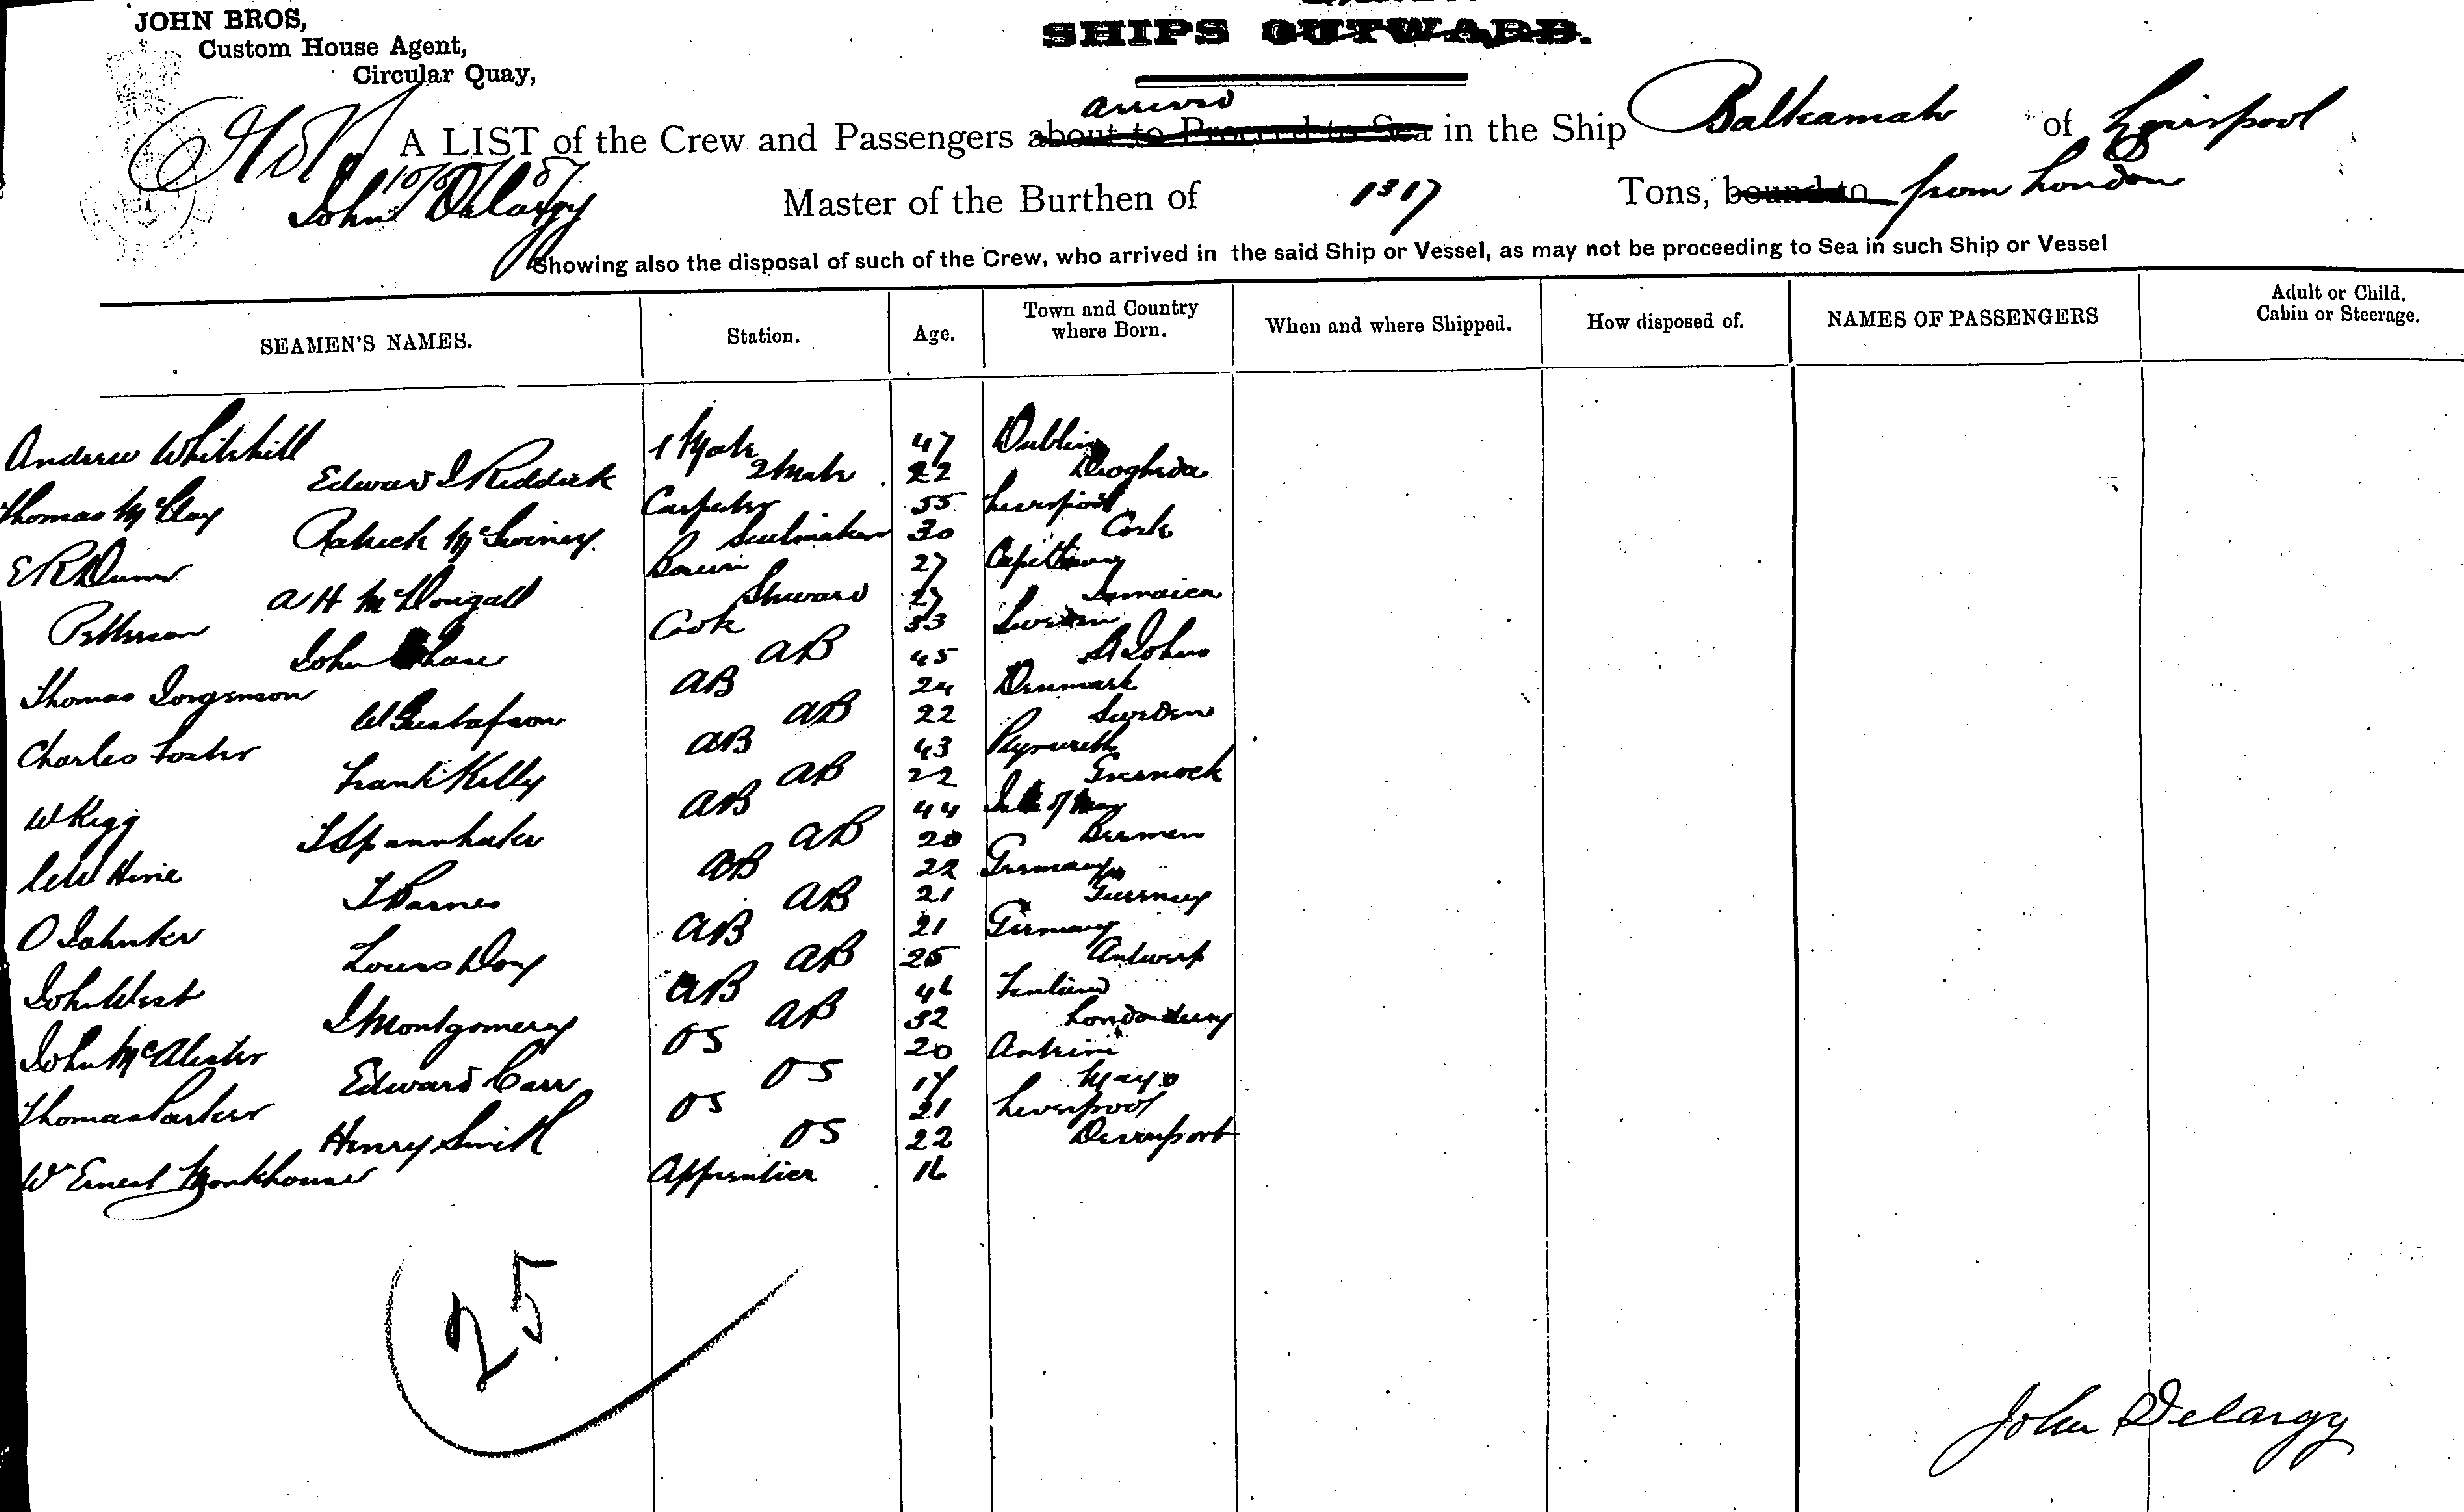 JOHN BROS,
Custom House Agent,
Circular Quay,
SHIPS OUTWARD.
arrived
A LIST of the Crew and Passengers about to Proceed to Sea in the Ship Balkamah of Liverpool
John Delargy Master of the Burthen of 1317 Tons, bound to from London
Showing also the disposal of such of the Crew, who arrived in the said Ship or Vessel, as may not be proceeding to Sea in such Ship or Vessel
SEAMEN'S NAMES. Station. Age. Town and Country where Born. When and where Shipped. How disposed of. NAMES OF PASSENGERS Adult or Child, Cabin or Steerage.
Andrew Whitehill 1 Mate 47 Dublin
Edward J Riddick 2 Mate 22 Drogheda
Thomas McClay Carpenter 55 Liverpool
Patrick McSwiney Sailmaker 30 Cork
E R Dunn Bosun 27 Capetown
A H McDougall Steward 27 Jamaica
Petterson Cook 33 Sweden
John Shaw AB 45 St Johns
Thomas Jorgenson AB 24 Denmark
W Gustafson AB 22 Sweden
Charles Foster AB 43 Plymouth
Frank Kelly AB 22 Greenock
W Kegg AB 44 Isle of Man
J Spannhake AB 20 Bremen
C W Hine AB 22 Germany
J Barnes AB 21 Guernsey
O Jahnker AB 21 Germany
Louis Doy AB 25 Antwerp
John West AB 46 Finland
J Montgomery AB 32 Londonderry
John McAlister OS 20 Antrim
Edward Carr OS 17 Mayo
Thomas Parker OS 21 Liverpool
Henry Smith OS 22 Devonport
W Ernest Monkhouse Apprentice 16
25
John Delargy